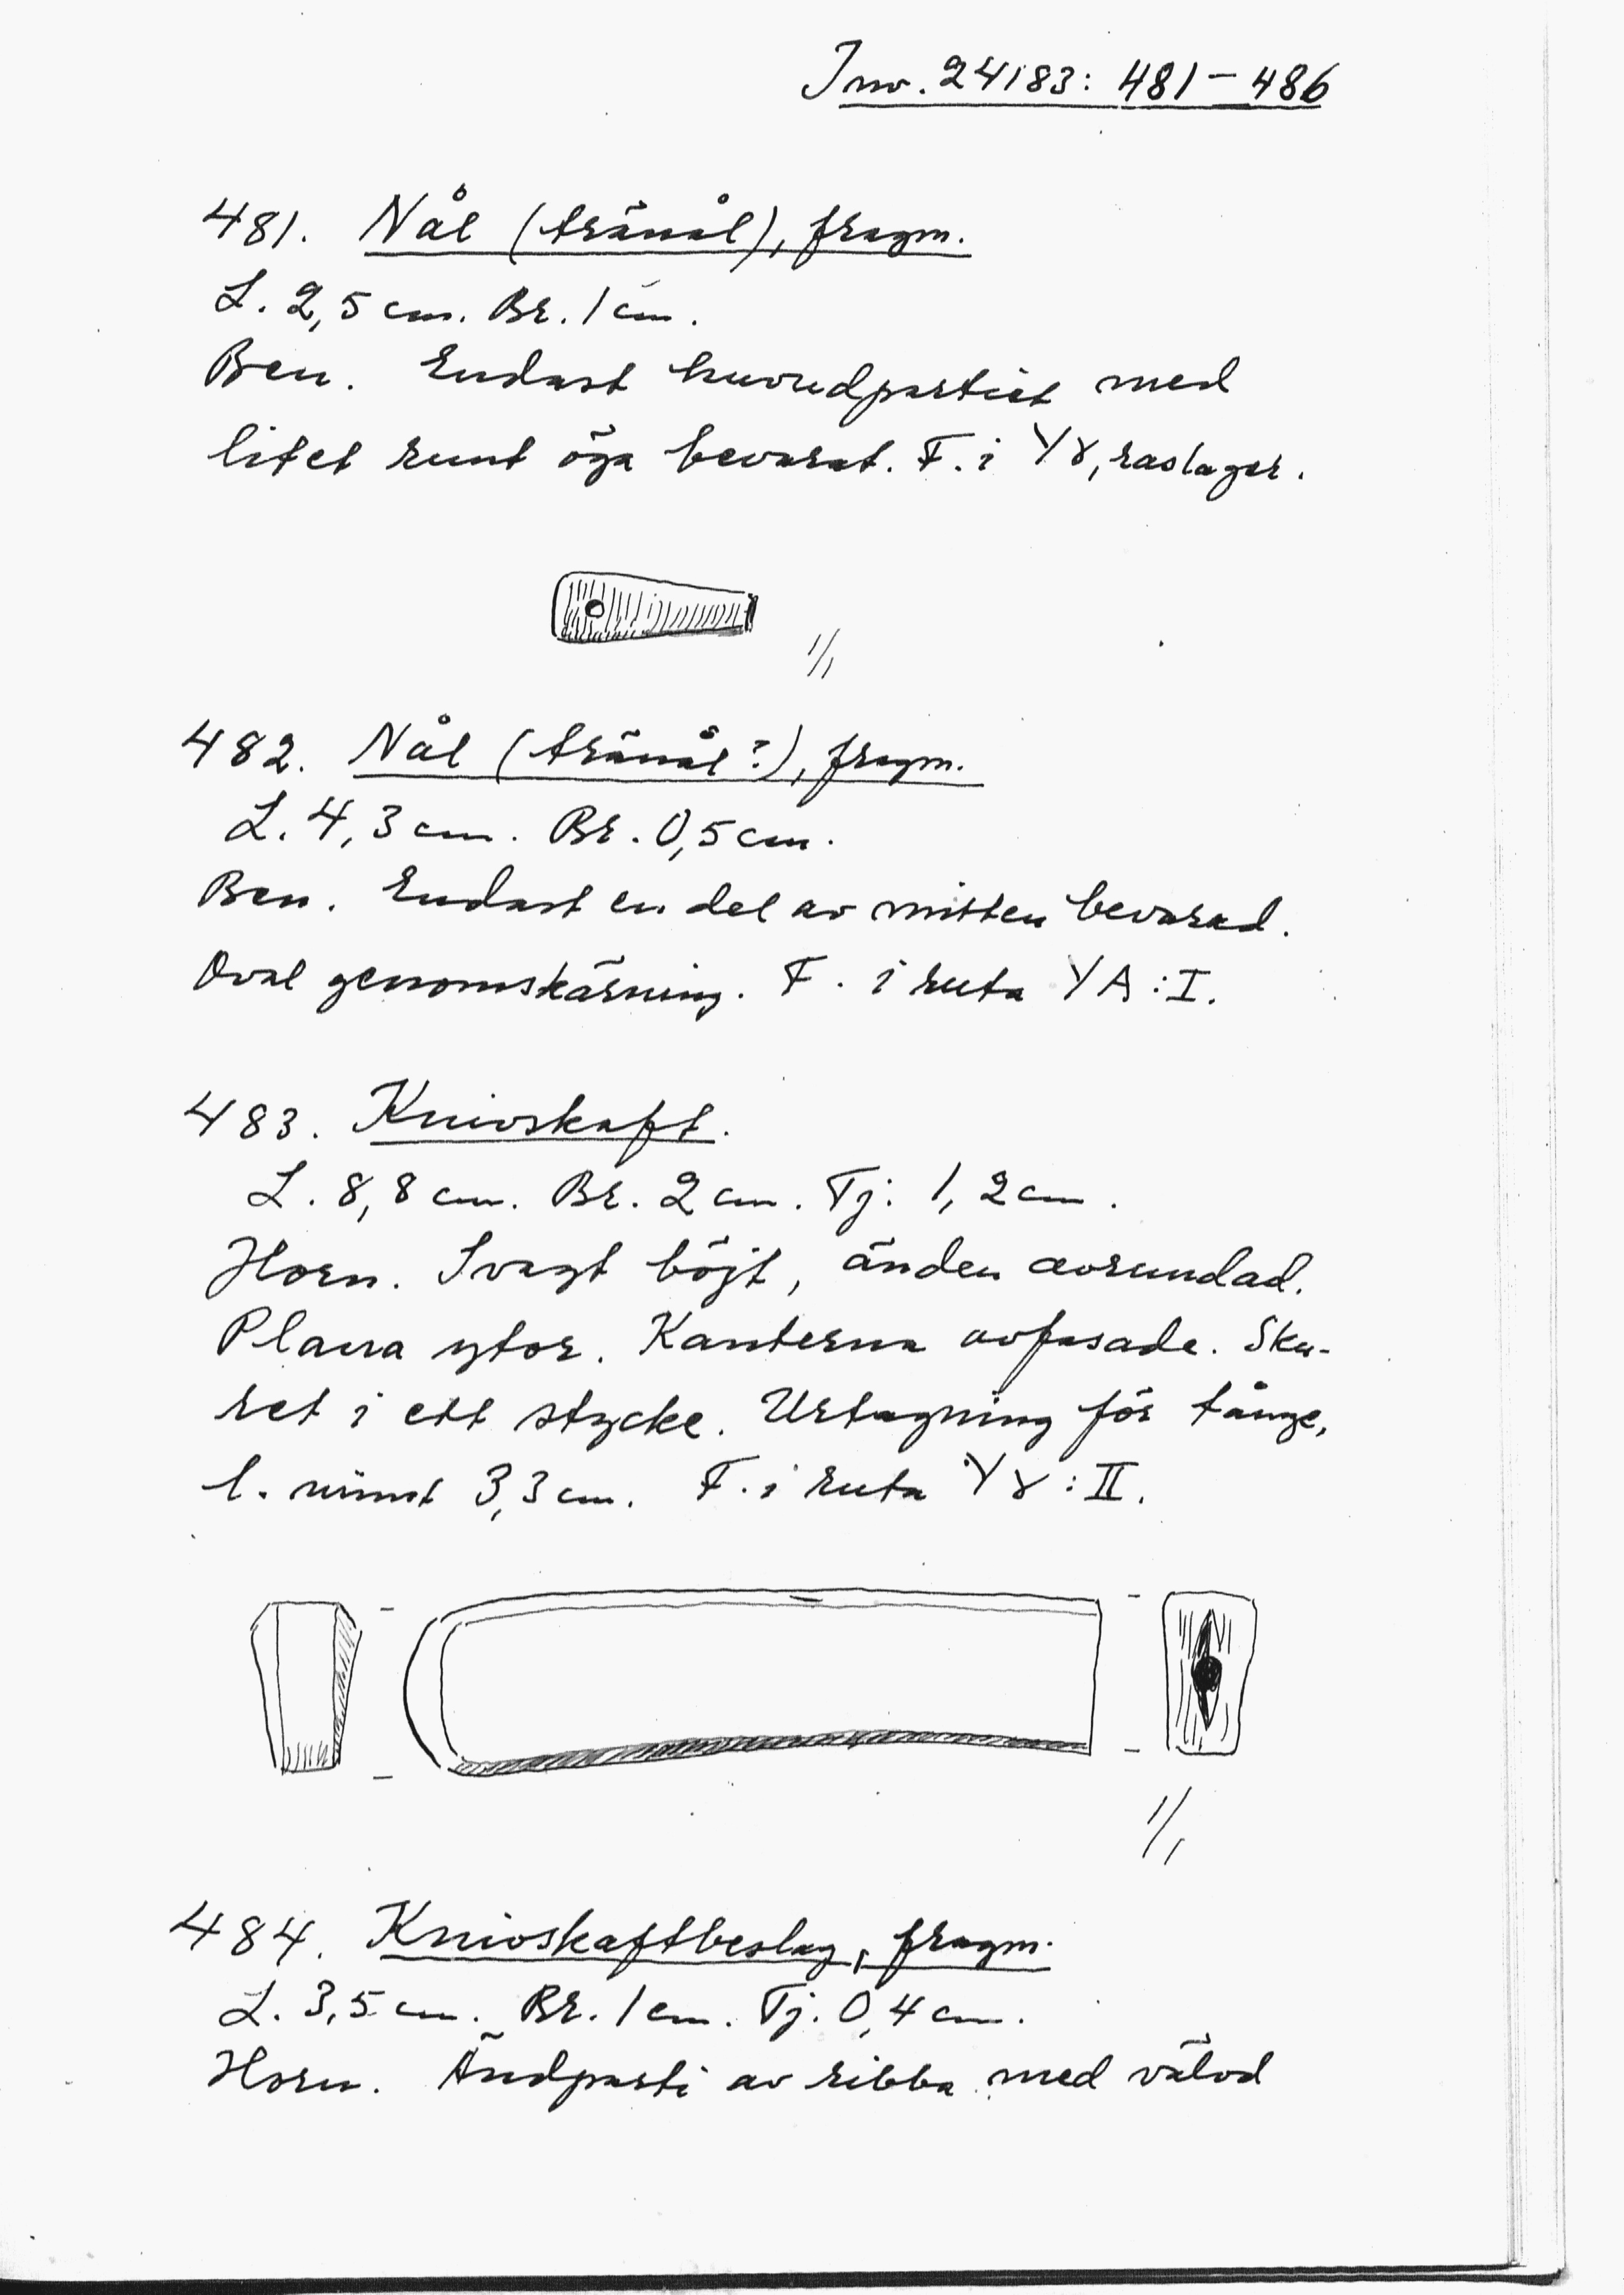 Inv. 24183: 481–486
481. Nål (tränål), fragm.
L. 2,5 cm. Br. 1 cm.
Ben. Endast huvudpartiet med
litet runt öga bevarat. F. i Yγ, raslager.
1/1
482. Nål (tränål?), fragm.
L. 4,3 cm. Br. 0,5 cm.
Ben. Endast en del av mitten bevarad.
Oval genomskärning. F. i ruta YA:I.
483. Knivskaft.
L. 8,8 cm. Br. 2 cm. Tj: 1,2 cm.
Horn. Svagt böjt, änden avrundad.
Plana ytor. Kanterna avfasade. Sku-
ret i ett stycke. Urtagning för tånge,
l. minst 3,3 cm. F. i ruta Yγ:II.
1/1
484. Knivskaftbeslag, fragm.
L. 3,5 cm. Br. 1 cm. Tj. 0,4 cm.
Horn. Ändparti av ribba med välvd